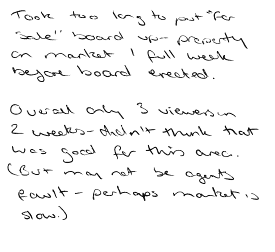 Took too long to put "for
sale" board up - property
on market 1 full week
before board erected.
Overall only 3 viewers in
2 weeks - didn't think that
was good for this area.
(But may not be agents
fault - perhaps market is
slow.)